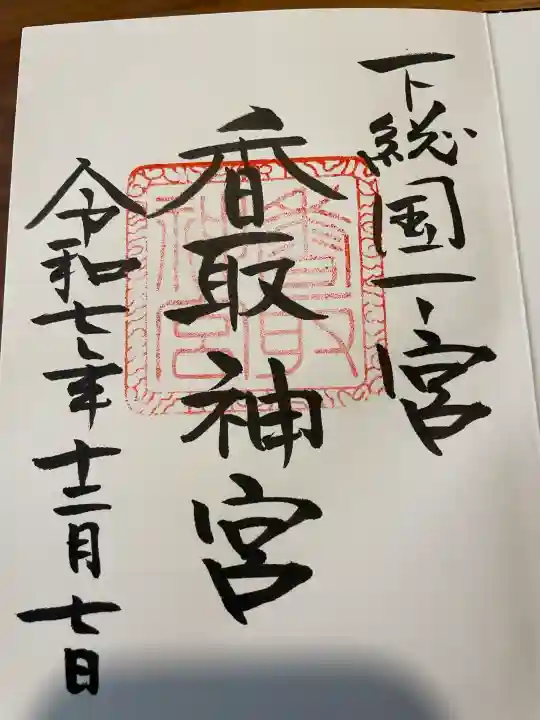 下総国一宮
香取神宮
香取神宮
令和七年十二月七日